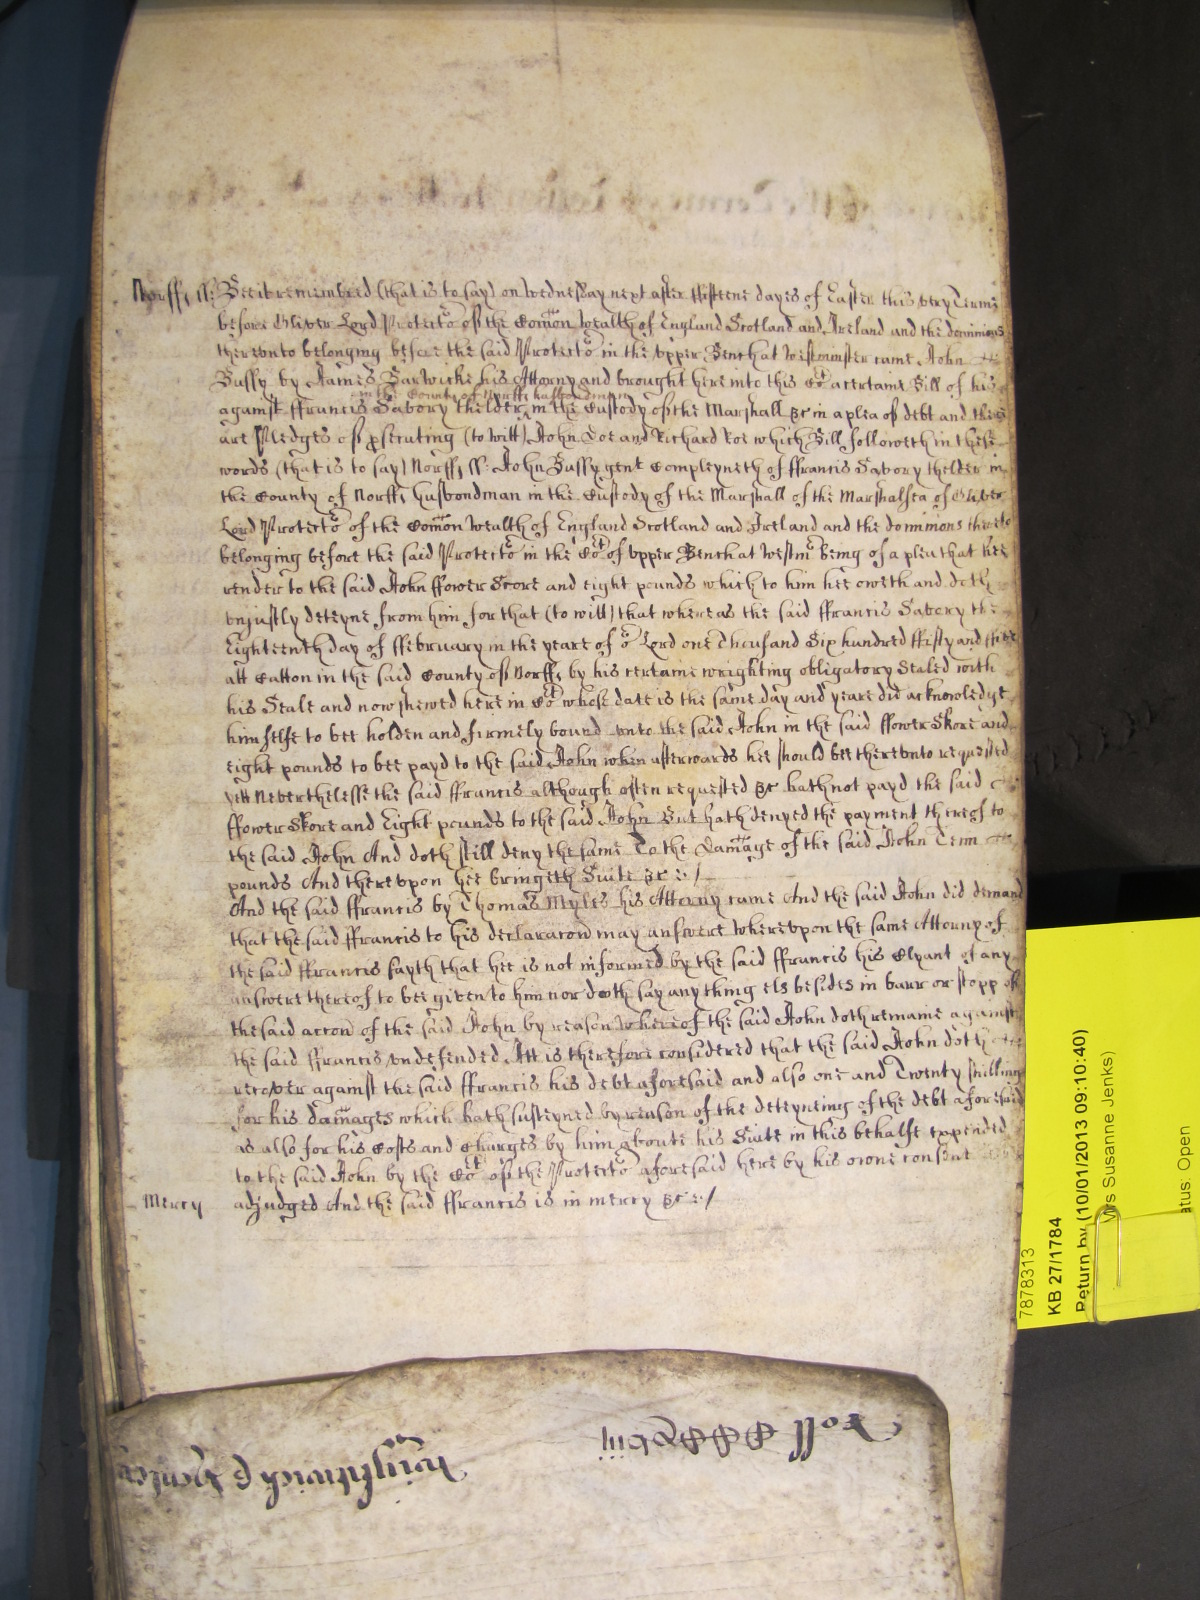 Norff, ss: Bee it remembred (that is to say) on wednesday next after ffifteene dayes of Easter this very Terme
before Oliver Lord Protecto^r of the Com̃on wealth of England Scotland and Ireland and the dominions
therevnto belonging before the said Protecto^r in the vpper Bench at Westminster came John
Bussy by James Barwicke his Attorny and brought here into this Co^rt a certaine Bill of his
in the County of Norff, husbondman
against ffrancis Savory thelder ^ in the Custody of the Marshall &c in a plea of debt and there
are Pledges of prosecuting (to witt) John Doe and Richard Roe which Bill followeth in these
words (that is to say) Norff, ss: John Bussy gent Compleyneth of ffrancis Savory thelder in
the County of Norff, husbondman in the Custody of the Marshall of the Marshalsea of Oliver
Lord Protecto^r of the Com̃on wealth of England Scotland and Ireland and the dominions thereto
belonging before the said Protecto^r in the Co^rt of vpper Bench at Westm^r being of a plea that hee
render to the said John ffower Score and eight pounds which to him hee oweth and doth
vniustly deteyne from him for that (to witt) that whereas the said ffrancis Savory the
Eighteenth day of ffebruary in the yeare of o^r Lord one Thousand Six hundred ffifty and
att Catton in the said County of Norff, by his certaine wrighting obligatory Sealed with
his Seale and now shewed here in Co^rt whose date is the same day and yeare did acknowledge
himselfe to bee holden and firmely bound vnto the said John in the said ffower Skore and
eight pounds to bee payd to the said John when afterwards hee should bee therevnto requested
yett Neverthelesse the said ffrancis although often requested &c hath not payd the said
ffower Skore and Eight pounds to the said John But hath denyed the payment thereof to
the said John And doth still deny the same To the Dam̃age of the said John Tenn
pounds And therevpon hee bringeth Suite &c ./
And the said ffrancis by Thomas Myles his Attorny came And the said John did demand
that the said ffrancis to his declaracon may answere wherevpon the same Attorny of
the said ffrancis sayth that hee is not informed by the said ffrancis his Clyant of any
answere thereof to bee given to him nor doeth say any thing els besides in barr or stopp of
the said accon of the said John by reason whereof the said John doth remaine against
the said ffrancis vndefended Itt is therefore considered that the said John doth
recover against the said ffrancis his debt aforesaid and also one and Twenty shillings
for his dam̃ages which hath susteyned by reason of the deteyneing of the debt aforesaid
as also for his Costs and Charges by him aboute his Suite in this behalfe expended
to the said John by the Co^rt of the Protecto^r aforesaid here by his owne consent
Mercy adjudged And the said ffrancis is in mercy &c ./
Roll
Wightwich &
7878313
KB 27/1784
Return by (10/01/2013 09:10:40)
Mrs Susanne Jenks)
atus: Open